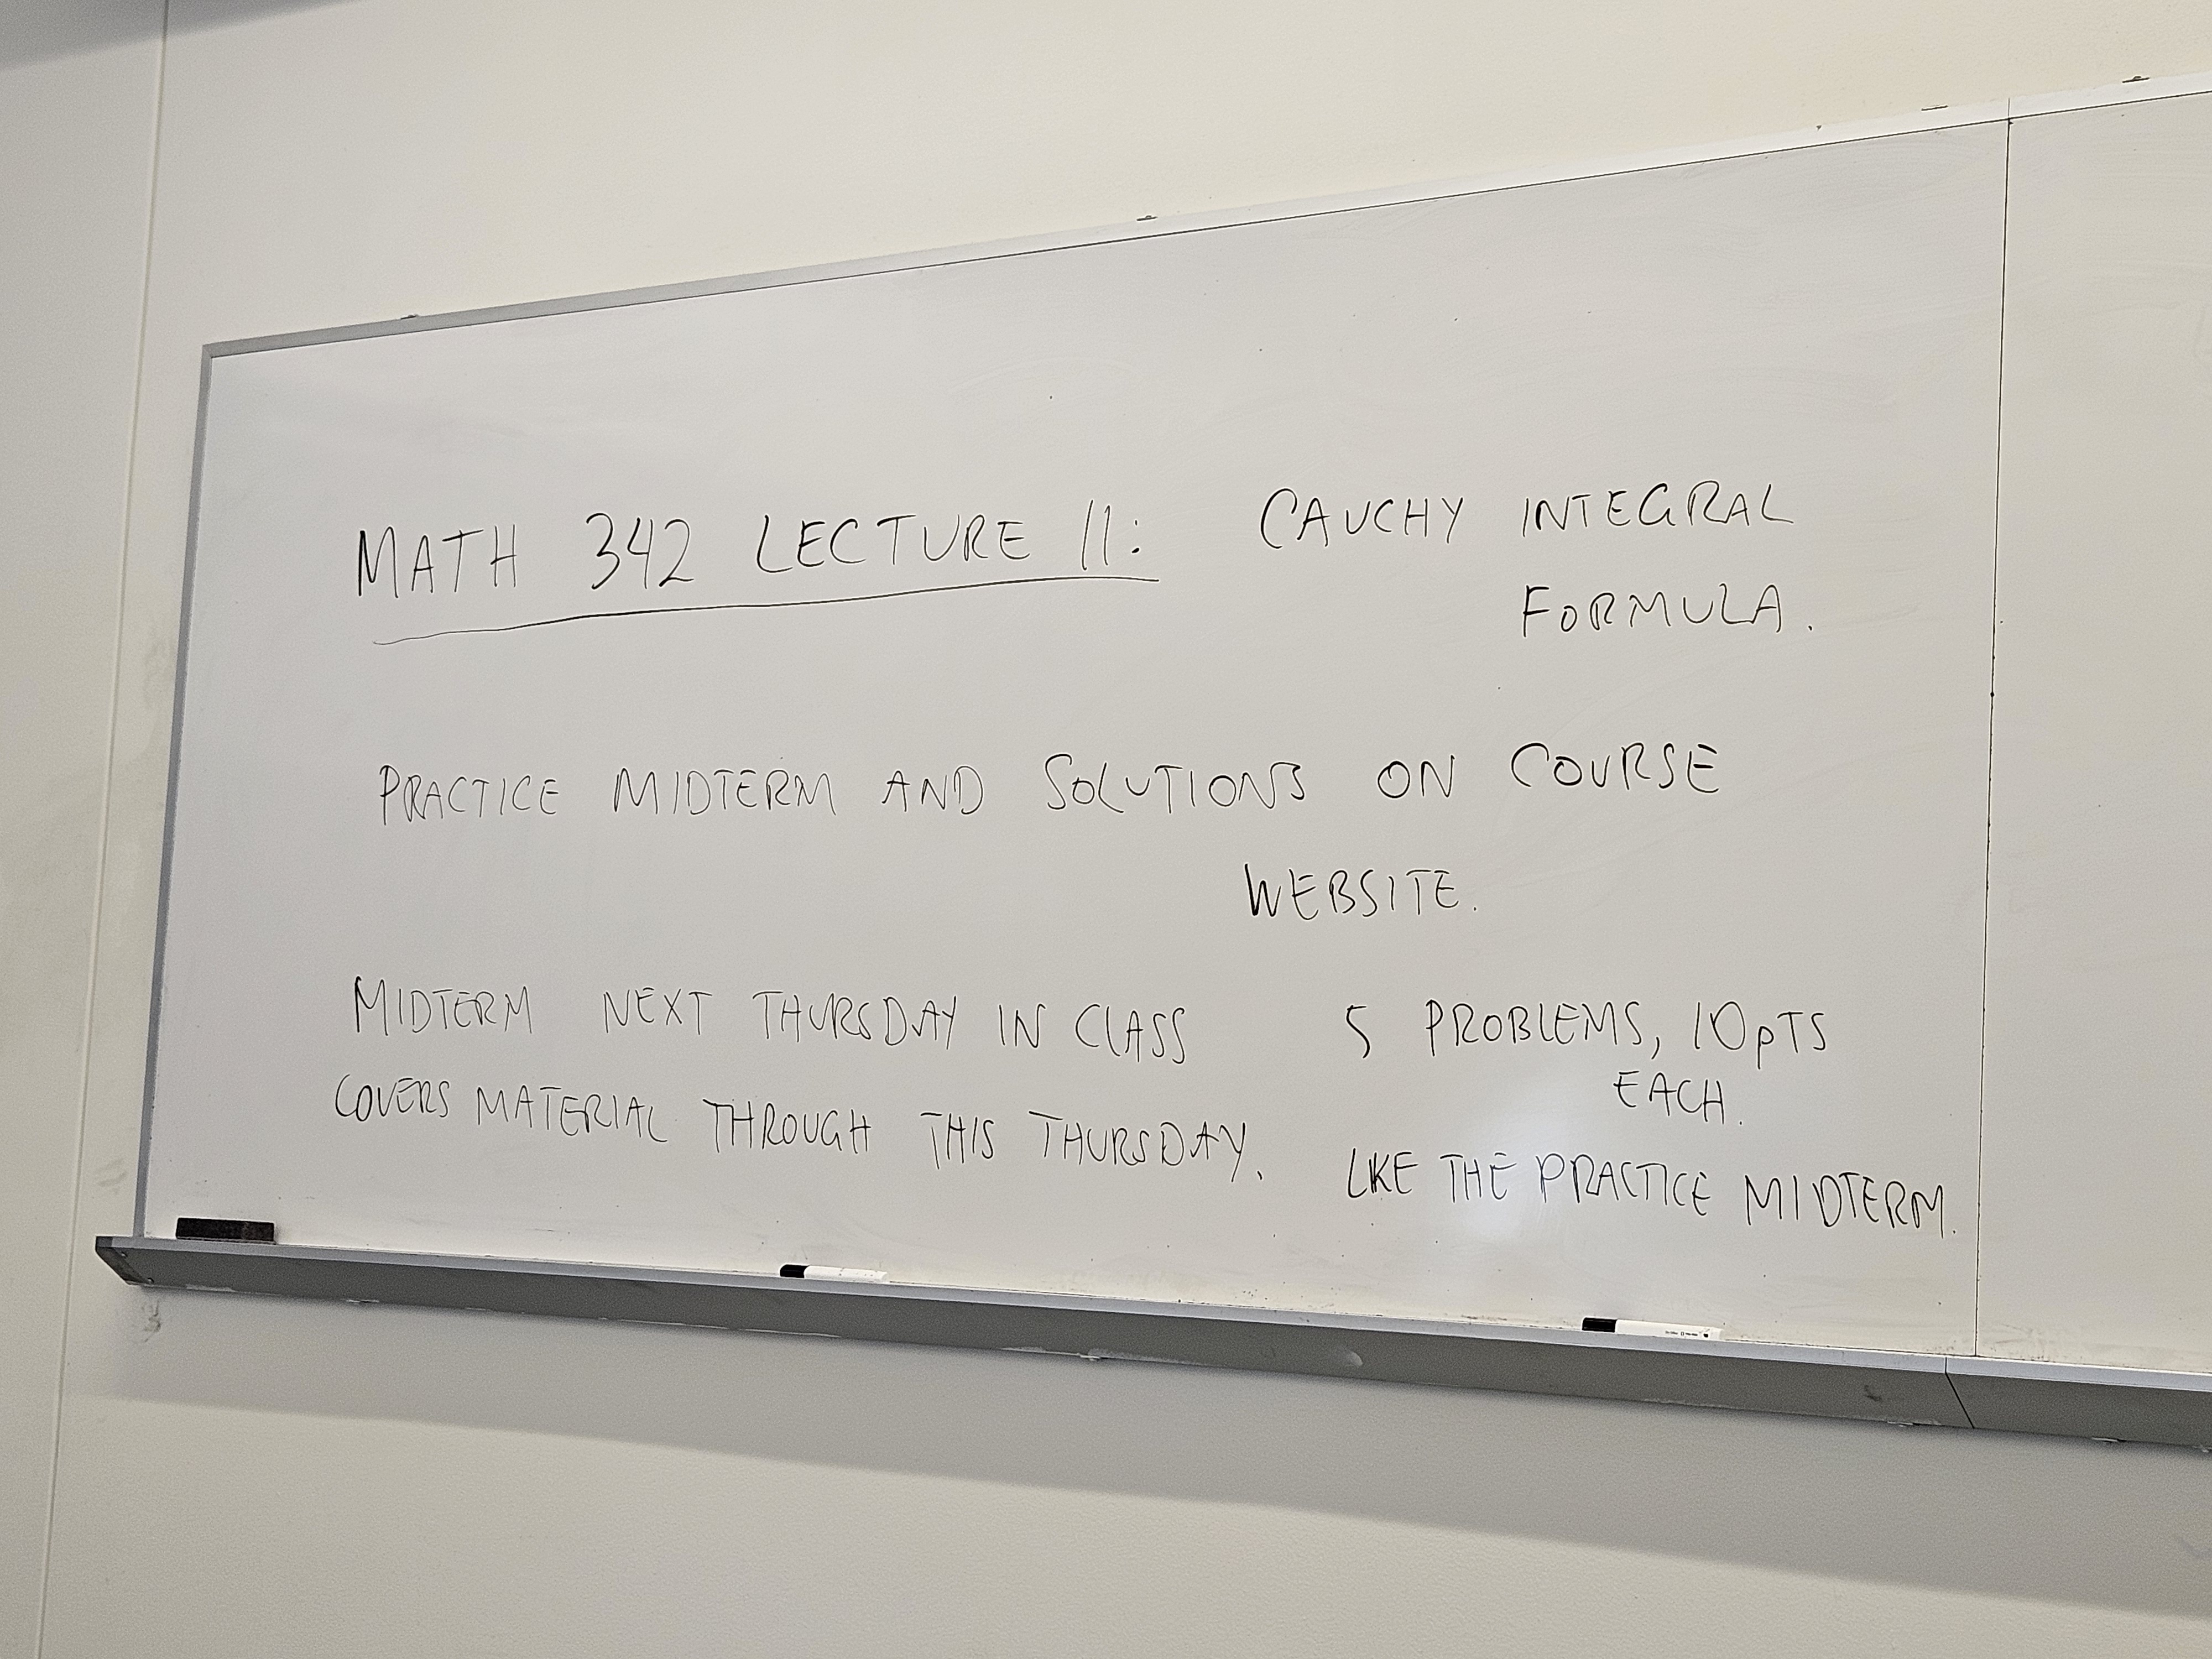 MATH 342 LECTURE 11: CAUCHY INTEGRAL
FORMULA.
PRACTICE MIDTERM AND SOLUTIONS ON COURSE
WEBSITE.
MIDTERM NEXT THURSDAY IN CLASS
COVERS MATERIAL THROUGH THIS THURSDAY.
5 PROBLEMS, 10 pTS
EACH.
LIKE THE PRACTICE MIDTERM.